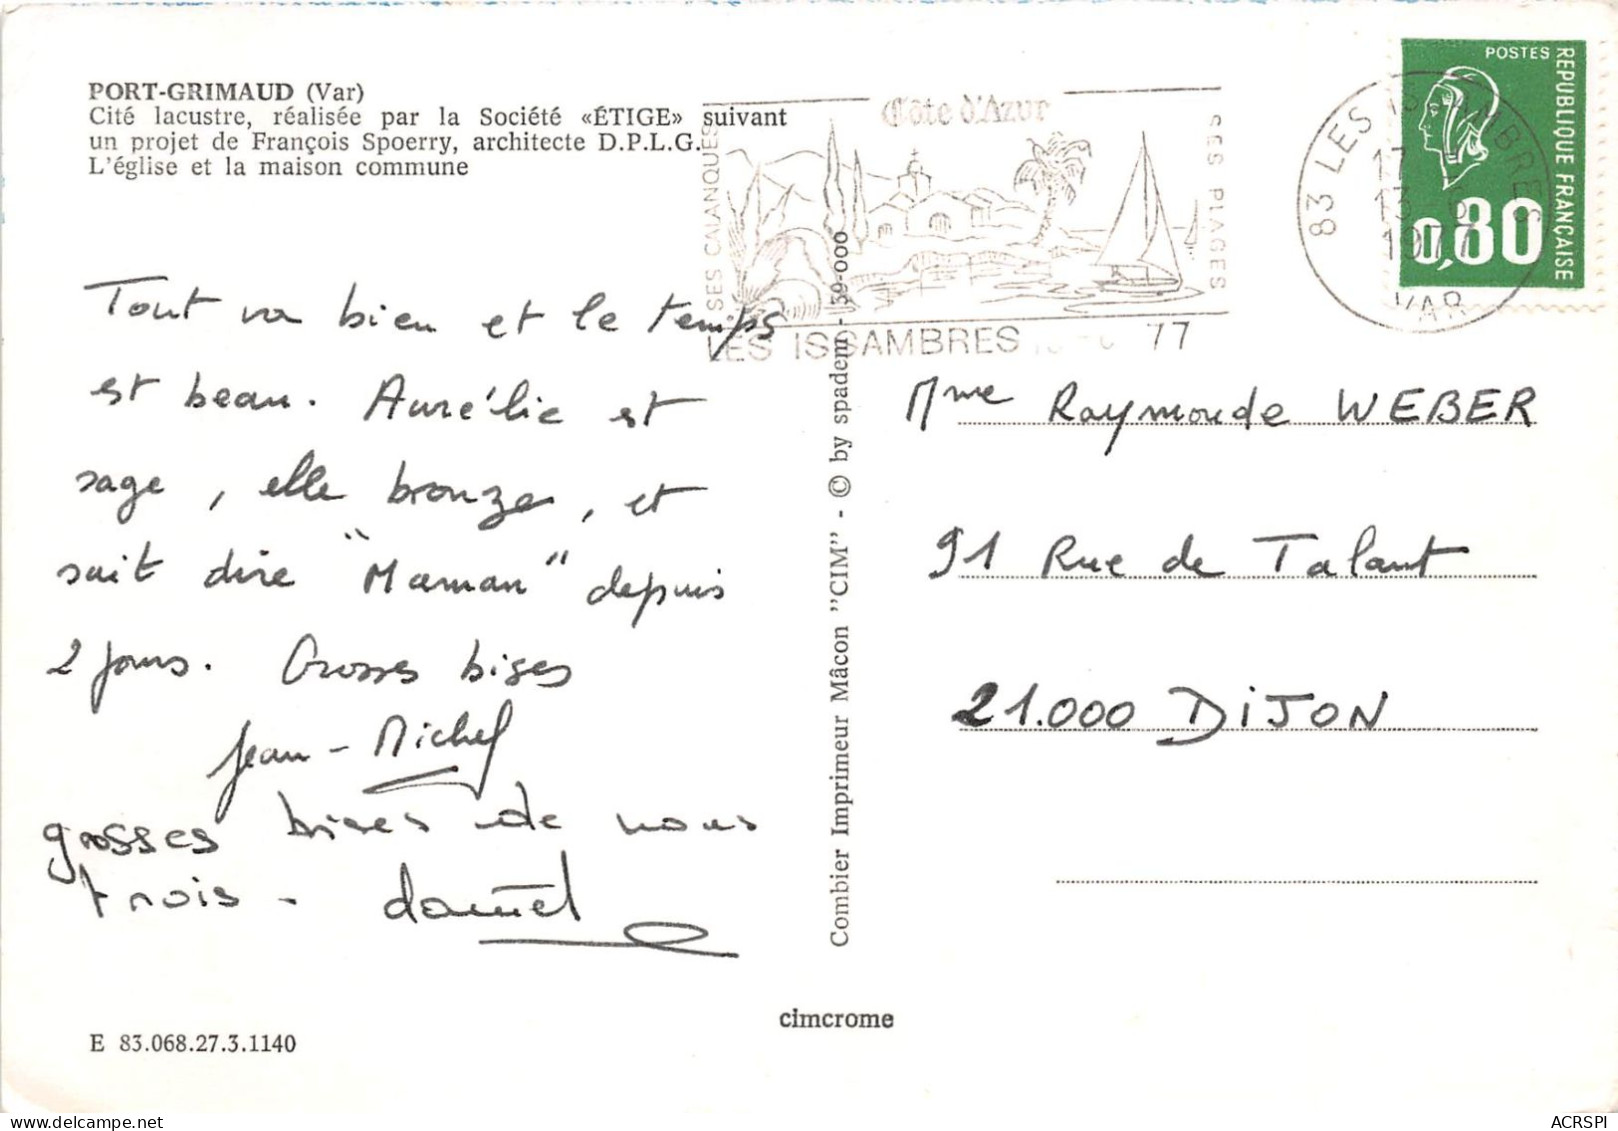 PORT-GRIMAUD (Var)
Cité lacustre, réalisée par la Société «ÉTIGE» suivant
un projet de François Spoerry, architecte D.P.L.G.
L'église et la maison commune
Côte d'Azur
SES CALANQUES
SES PLAGES
LES ISSAMBRES 77
83 LES ISSAMBRES
17
13
1977
VAR
POSTES
REPUBLIQUE FRANÇAISE
0,80
Tout va bien et le temps
est beau. Aurélie est
sage, elle bronze, et
sait dire "Maman" depuis
2 jours. Grosses bises
Jean-Michel
grosses bises de nous
trois -
Combier Imprimeur Mâcon "CIM" - © by spadem - 39-000
Mme Raymonde WEBER
91 Rue de Talant
21.000 DIJON
cimcrome
E 83.068.27.3.1140
ACRSPI